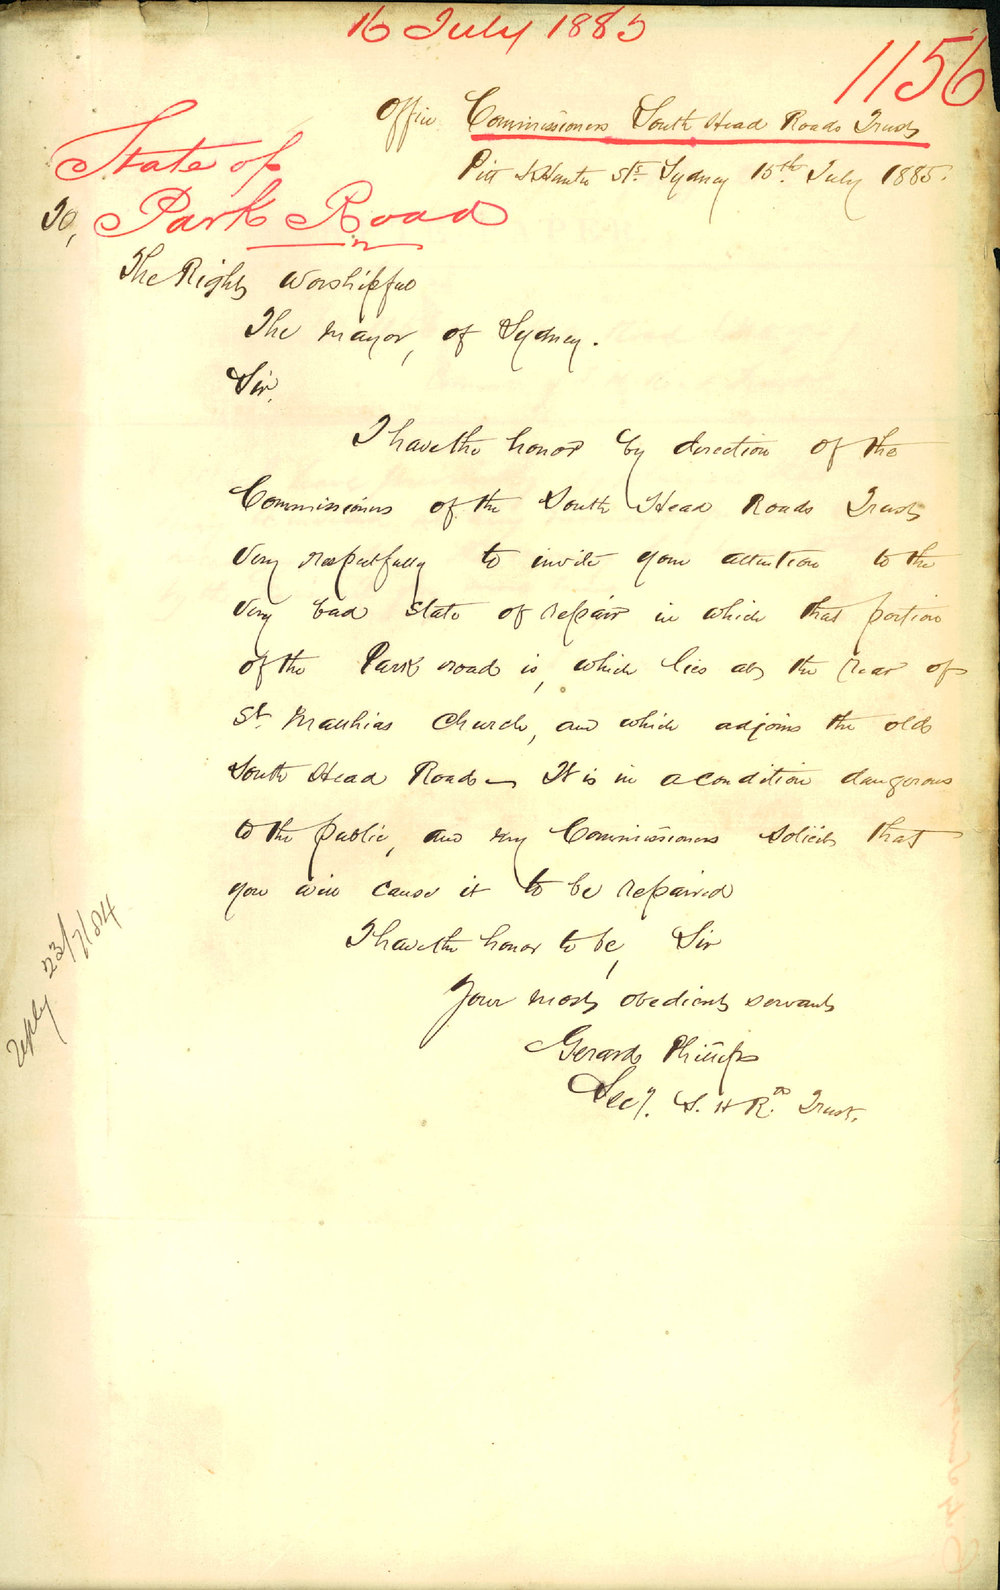 16 July 1885
1156
Office Commissioners South Head Roads Trust
Pitt & Hunter Sts. Sydney 15th. July 1885.
State of
Park Road
To,
The Right Worshipful
The Mayor, of Sydney.
Sir,
I have the honor by direction of the
Commissioners of the South Head Roads Trust
very respectfully to invite your attention to the
very bad state of repair in which that portion
of the Park road is, which lies at the rear of
St. Matthias Church, and which adjoins the old
South Head Road — It is in a condition dangerous
to the public, and my Commissioners solicit that
you will cause it to be repaired
I have the honor to be, Sir
Your most obedient servant
Gerard Phillips
Secy. S. H Rds. Trust.
reply 23/7/84